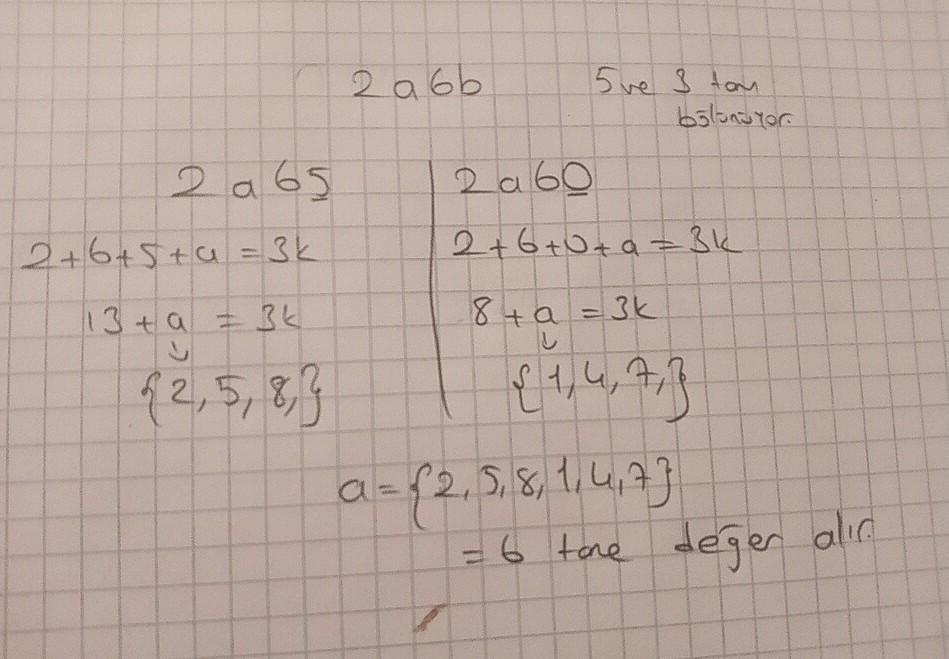 2a6b
5 ve 3 tam
bölünüyor.
2a65
2+6+5+a=3k
13+a=3k
↓
{2,5,8,}
2a60
2+6+0+a=3k
8+a=3k
↓
{1,4,7,}
a={2,5,8,1,4,7}
=6 tane değer alır.